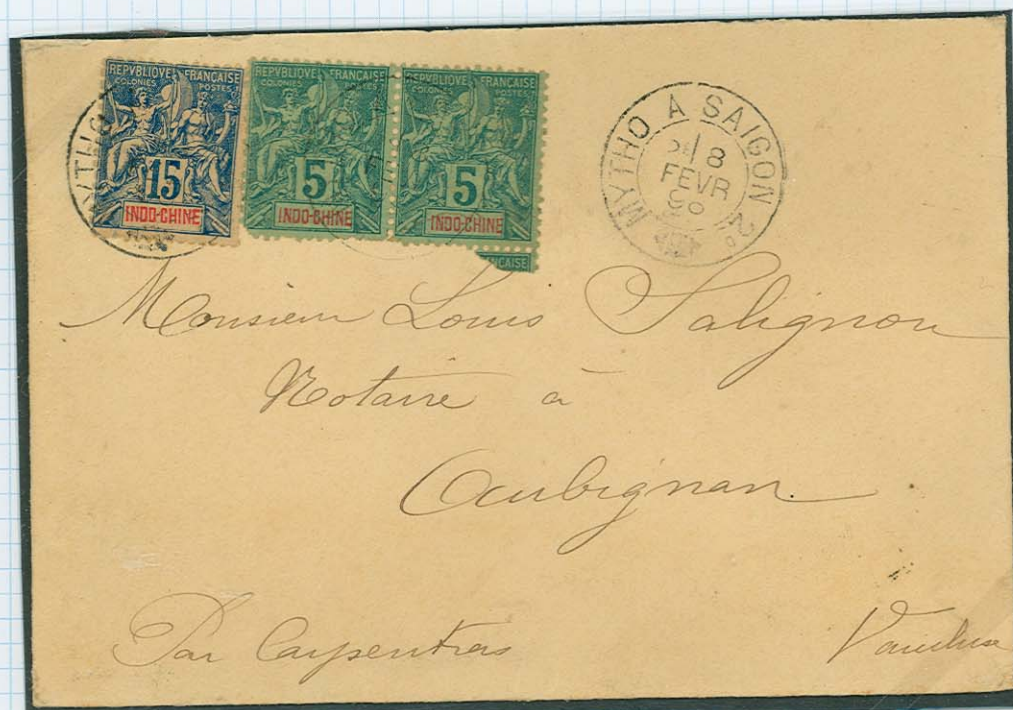 REPVBLIQVE FRANÇAISE
COLONIES POSTES
15
INDO-CHINE
REPVBLIQVE FRANÇAISE
COLONIES POSTES
5
INDO-CHINE
REPVBLIQVE FRANÇAISE
COLONIES POSTES
5
INDO-CHINE
ANÇAISE
MYTHO
MYTHO A SAIGON 2º
8
FEVR
Monsieur Louis Salignon
Notaire à
Aubignan.
Par Carpentras
Vaucluse